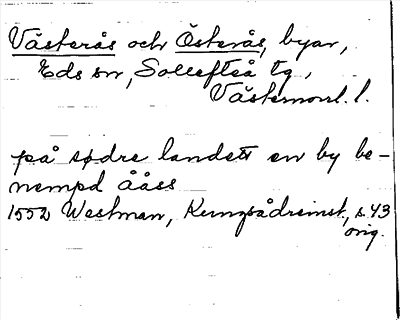 Västerås och Österås, byar,
Eds sn, Sollefteå tg,
Västernorrl. l.
på sødre landett en by be-
nempd Ååss
1552 Westman, Kungsådreinst, s. 43
orig.